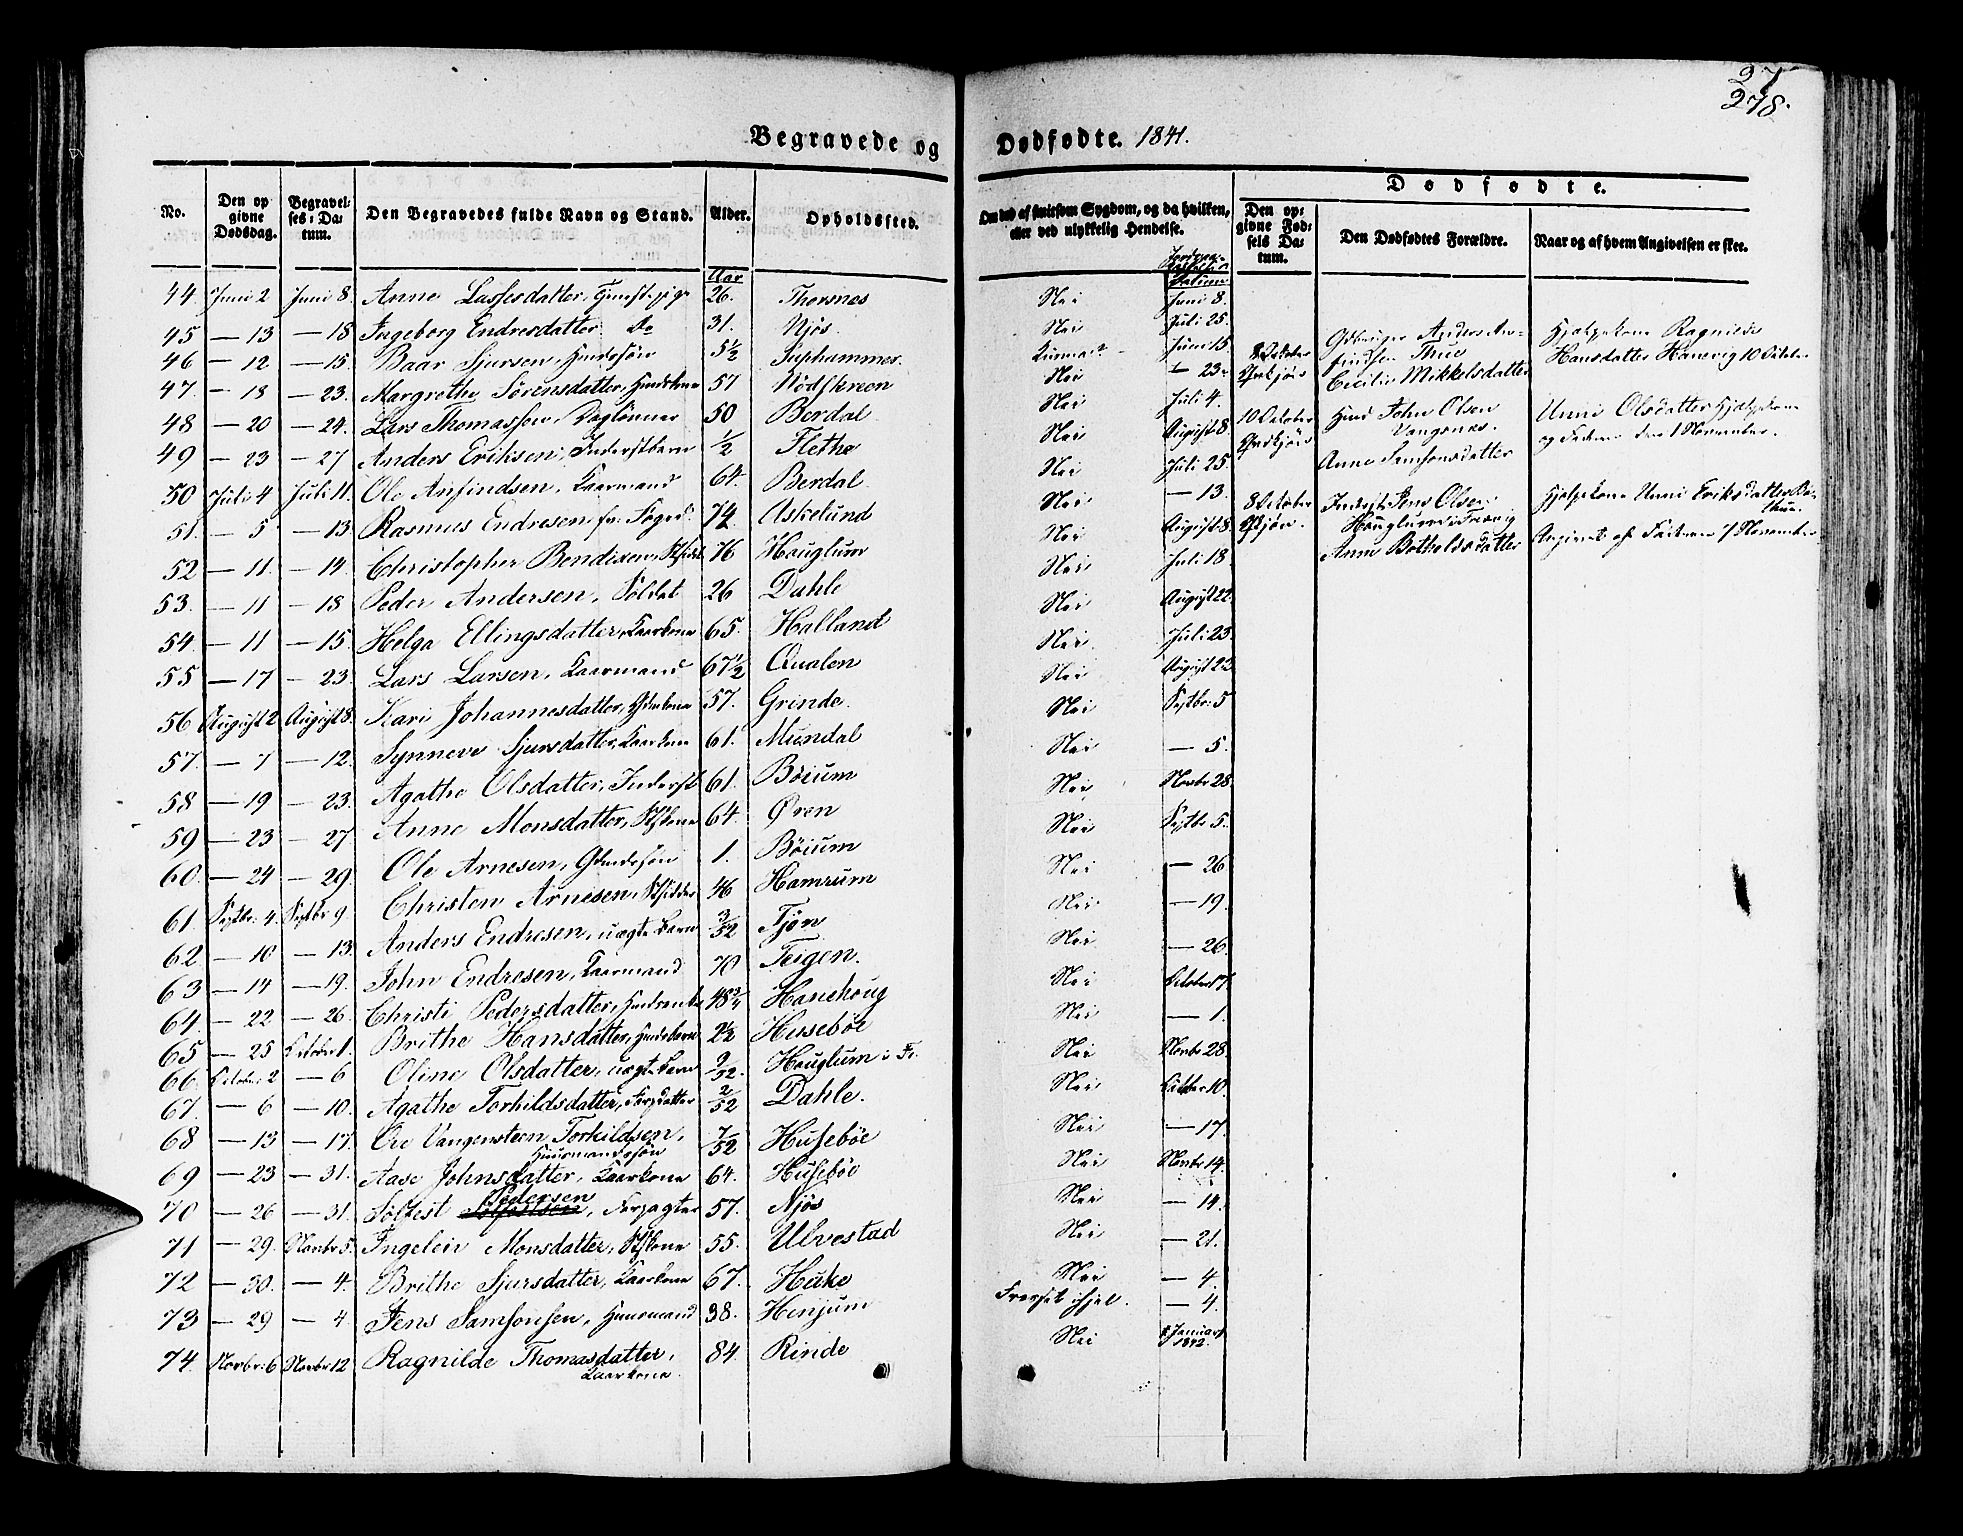 27
278.
Begravede og Dødfødte. 1841.
No. Den opgivne Dødsdag. Begravelses-Datum. Den Begravedes fulde Navn og Stand. Alder. Opholdssted. Om død af smitsom Sygdom, og da hvilken, eller ved ulykkelig Hendelse.
Dødfødte.
Den opgivne Fødsels Datum. Den Dødfødtes Forældre. Naar og af hvem Angivelsen er skee.
Aar
44. Juni 2 Juni 8. Anne Lassesdatter, 26. Thorsnes Nei Juni 8.
45 — 13 — 18 Ingeborg Endresdatter Do 31. Njøs. Nei Juli 25.
46 — 12 — 15. Baar Sjursen, 5½ Suphammer. Juni 15.
47. — 18 — 23. Margrethe Sørensdatter, 57 Nødskreen Nei — 23
48 — 20 — 24. Lars Thomassen, Daglønner 50 Berdal Nei Juli 4.
49 — 23 — 27 Anders Eriksen, Inderstbarn ½ Flethe Nei August 8.
50 Juli 4 Juli 11. Ole Anfindsen, Kaarmand 64. Berdal Nei Juli 25.
51. — 5 — 13 Rasmus Endresen, 74. Askelund Nei — 13.
52 — 11 — 14. Christopher Bendixen, 76 Hauglum Nei August 8
53. — 11 — 18 Peder Andersen, Soldat 26 Dahle Nei Juli 18.
54. — 11 — 15. Helga Ellingsdatter, Kaarkone 65. Halland Nei August 22
55 — 17 — 23. Lars Larsen, Kaarmand 67½ Qualen Nei. Juli 23.
56 August 2 August 8. Kari Johannesdatter, 57. Grinde. Nei August 22
57. — 7 — 12. Synneve Sjursdatter, Kaarkone 61. Mundal Nei Septbr: 5
58 — 19 — 23. Agathe Olsdatter, Inderst 61. Bøium Nei — 5.
59 — 23 — 27 Anne Monsdatter, 64. Øren Nei Novbr 28.
60. — 24 — 29. Ole Arnesen, 1. Bøium Nei Septbr 5.
61 Septbr: 4. Septbr 9 Christen Arnesen, 46 Hamrum Nei — 26
62 — 10 — 13. Anders Endresen, uægte Barn 3/52 Tjøn Nei — 19.
63 — 14 — 19. John Endresen, Kaarmand 70 Teigen. Nei — 26.
64. — 22 — 26. Christi Pedersdatter, 48¾ Hanehoug Nei October 17.
65 — 25 October 1. Brithe Hansdatter, 2½ Husebøe Nei — 1.
66. October 2 — 6 Oline Olsdatter, uægte Barn Hauglum i Fr. Nei Novbr 28.
67. — 6 — 10. Agathe Torkildsdatter, 2/52 Dahle. Nei Octbr 10.
68 — 13 — 17 Ove Vangensteen Torkildsen, 7/52 Husebøe Nei — 17.
Huusmandssøn
69 — 23 — 31. Aase Johnsdatter, Kaarkone 64. Husebøe Nei Novbr 14.
Pedersen
70 — 26 — 31. Solfest Forpagter 57. Njøs Nei — 14.
71 — 29. Novbr 5. Ingeleiv Monsdatter, 55. Ulvestad Nei — 21.
72 — 30. — 4. Brithe Sjursdatter, Kaarkone 67. Huke Nei — 4.
73 — 29 — 4. Jens Samsonsen, Huusmand 38. Henjum Frøset ihjel. — 4.
74. Novbr: 6 Novbr 12 Ragnilde Thomasdatter, 84. Rinde Nei Januar 1842.
Kaarkone.
8 October Anders
Thue Cecilie Mikkelsdatter
Hjælpekone Ragnilde
Hansdatter Hanevig 10 October
10 October John Olsen
Vangsnes.
Anne Samsonsdatter
Unni Olsdatter Hjælpekone
og Faderen den 1 November.
8 October Inderst Jens Olsen
Hauglum i Frønnig
Anne Botholdsdatter
Hjelpekone Unni Eriksdatter
Angivet af Faderen 1 November